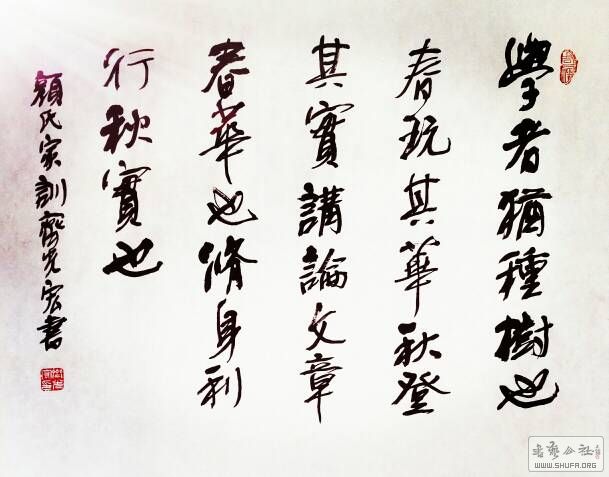 學者猶種樹也
春玩其華秋登
其實講論文章
春華也脩身利
行秋實也
顏氏家訓齊宏書
WWW.SHUFA.ORG